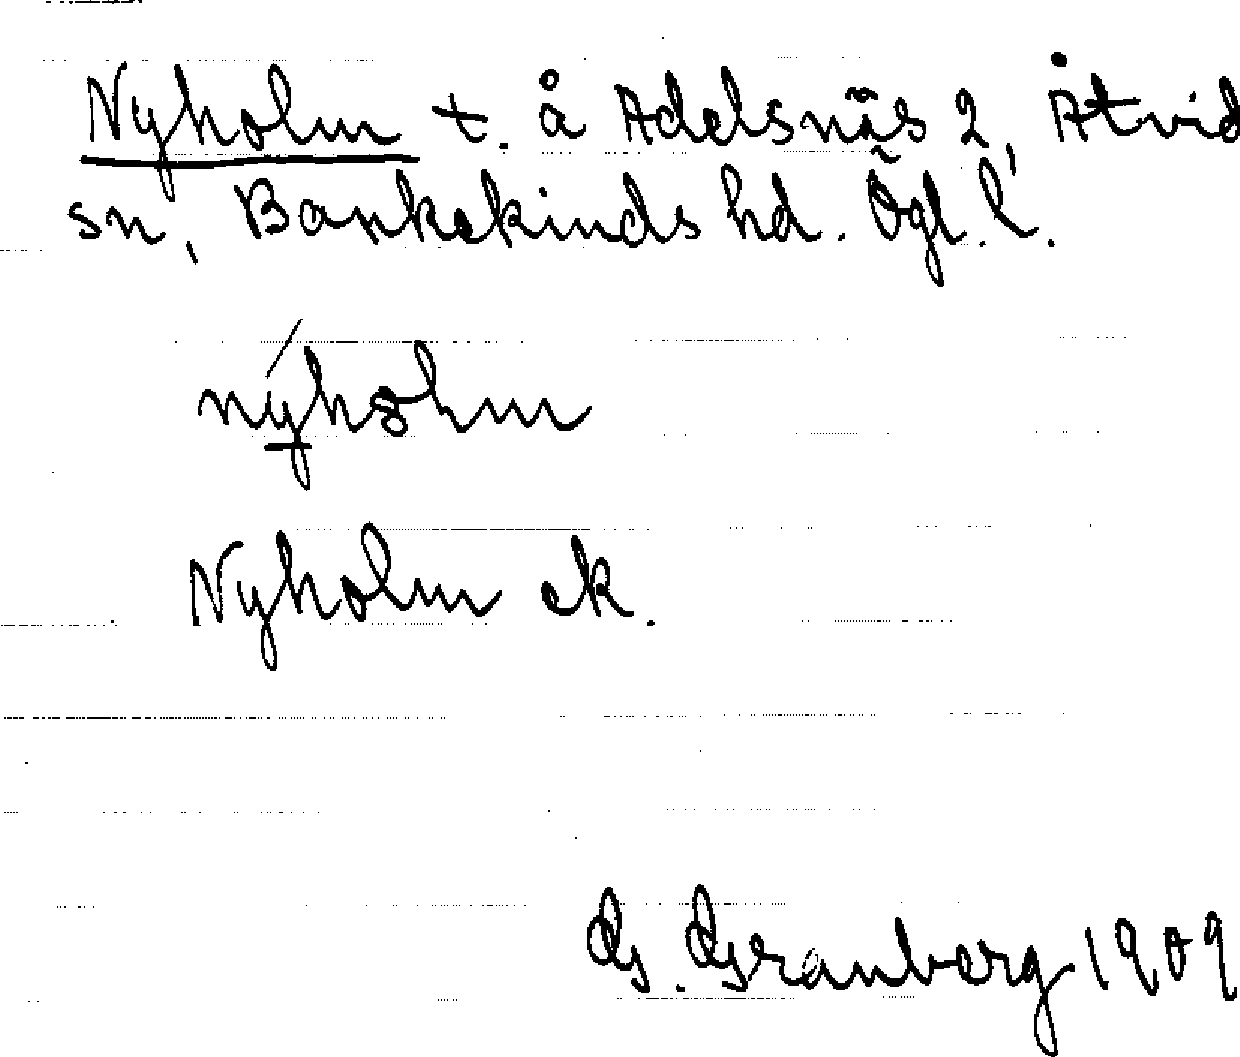 Nyholm t. å Adelsnäs 2, Åtvid
sn, Bankekinds hd. Ögl. l.
nyholm
Nyholm ek.
G. Granberg 1909